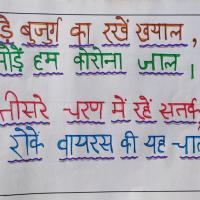 ड़े बुजुर्ग का रखें खयाल ,
तोड़ें हम कोरोना जाल ।
तीसरे चरण में रहें सतर्क
रोकें वायरस की यह चाल